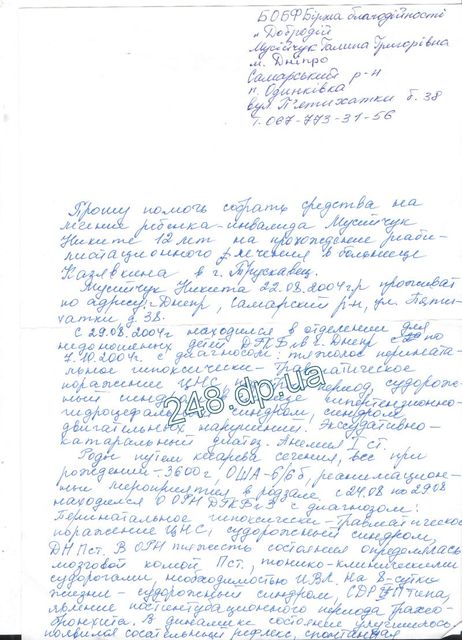 БОБФ Біржа благодійності
„Добродій
Мусійчук Галина Григорівна
м. Дніпро
Самарський р-н
п. Одинківка
вул П'ятихатки б. 38
т. 067-773-31-56
Прошу помочь собрать средства на
лечения ребенка-инвалида Мусийчук
Никите 12 лет на прохождение реаби-
литационного лечения в больнице
Казявкина в г. Трускавец.
Мусийчук Никита 22.08.2004г.р проживает
по адресу: г Днепр, Самарский р-н, ул. Пяти-
хатки д 38.
С 29.08.2004г находился в отделении для
недоношеных детей в г. Днепр с по
7.10.2004г. с диагнозом: тяжолое перината-
льное гипоксически-травматическое
поражение ЦНС, период, судорож-
ный синдром, гипертензионно-
гидроцефальный синдром, синдром
двигательных нарушений. Экссудативно-
катаральный диатез. Анемия I ст.
Роды путем кесарева сечения, вес при
рождении-3600г, ОША-6/6б, реанимацион-
ные мероприятия в родзале, с 24.08 по 29.08
находился в ОРН с диагнозом:
Перинатальное гипоксически-травматическое
поражение ЦНС, судорожный синдром,
ДН IIст. В ОРН тяжесть состояния определялась
мозговой комой IIст, тонико-клиническими
судорогами, необходимостью ИВЛ. На 8-сутки
жизни - судорожный синдром, СДР II типа,
явление постинтубационного периода трахео-
бронхита. В динамике состояние улучшилось,
появился сосательный рефлекс,
248.dp.ua